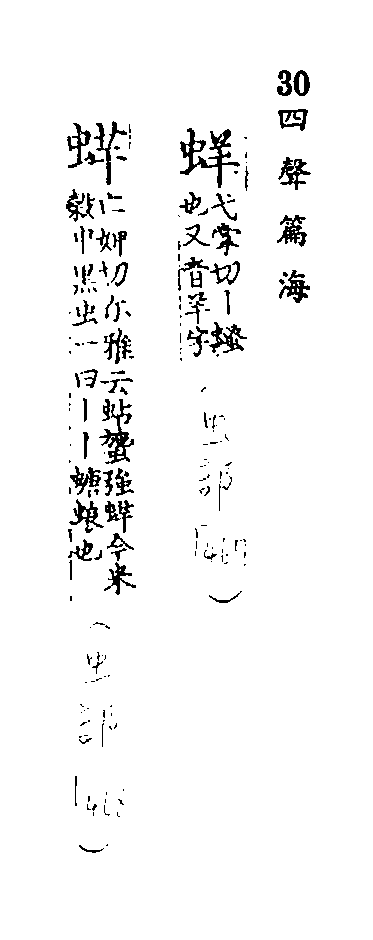 30 四聲篇海
蛘
弋掌切丨
也又音羊字
(虫部
467)
蛘
亡婢切尔雅云蛄䗐強蛘今米
穀中黑虫一曰丨丨螗蜋也
(虫部
468)